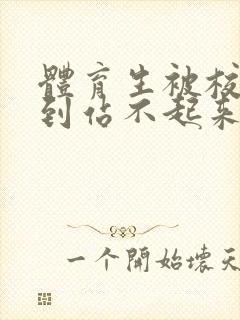 體育生被
到佔不起来
一个開始壞天